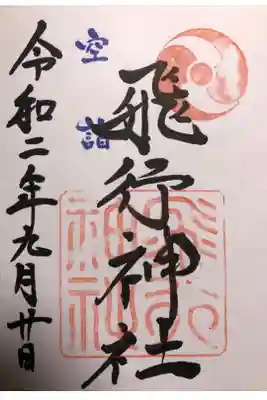 飛行神社
空詣
令和二年九月廿日
飛行神社